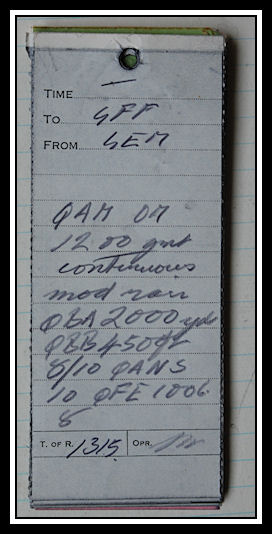 TIME —
TO GFF
FROM GEM
QAM OM
1200 gmt
continuous
mod rain
QBA 2000 yds
QBB 450ft
8/10 QANS
10 QFE 1006.
8
T. OF R. 1315 OPR.